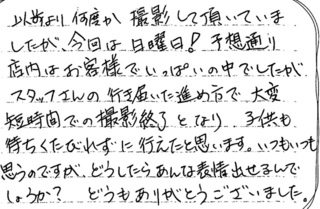 以前より何度か撮影して頂いていま
したが、今回は日曜日!予想通り
店内はお客様でいっぱいの中でしたが
スタッフさんの行き届いた進め方で大変
短時間での撮影終了となり 子供も
待ちくたびれずに行えたと思います。いつもいつも
思うのですが、どうしたらあんな表情出せるんで
しょうか? どうもありがとうございました。